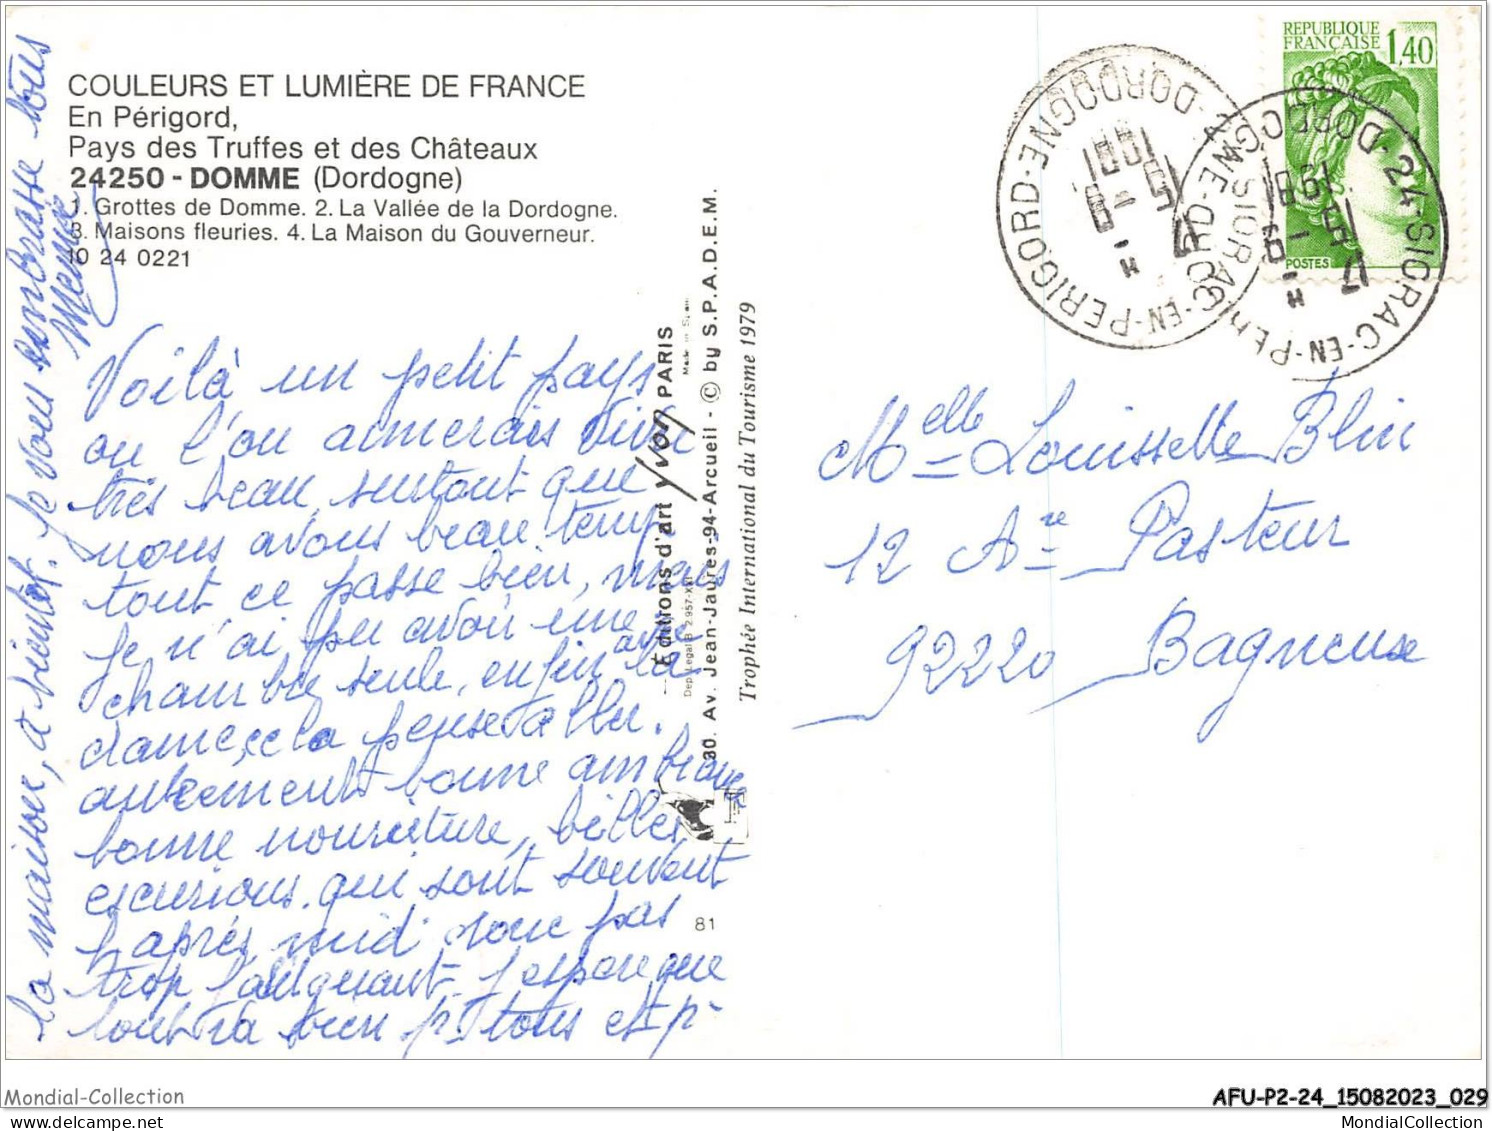 COULEURS ET LUMIÈRE DE FRANCE
En Périgord,
Pays des Truffes et des Châteaux
24250 - DOMME (Dordogne)
1. Grottes de Domme. 2. La Vallée de la Dordogne.
3. Maisons fleuries. 4. La Maison du Gouverneur.
10 24 0221
Voilà un petit pays
ou l'on aimerais vivre
très beau, surtout que
nous avons beau temps
tout ce passe bien, mais
je n'ai pu avoir une
chambre seule, enfin avec la
dame, cela peuse aller.
autrement bonne ambiance
bonne nouriture, belles
escurions. qui sont souvent
l'après midi donc pas
trop fatiguant. j'espere que
tout va bien p. tous et p.
la maison, à bientôt. Je vous embrasse tous
Mémé
Éditions d'art Yvon PARIS
Made in
Dep. Légal B 2.957-XVI
30. Av. Jean-Jaures-94-Arcueil - © by S.P.A.D.E.M.
Trophée International du Tourisme 1979
81
REPUBLIQUE
FRANÇAISE
1,40
POSTES
24-SIORAC-EN-PERIGORD-DORDOGNE
24-SIORAC-EN-PERIGORD-DORDOGNE
Melle Louissette Blin
12 Are Pasteur
92220 Bagneux
Mondial-Collection
AFU-P2-24_15082023_029
MondialCollection